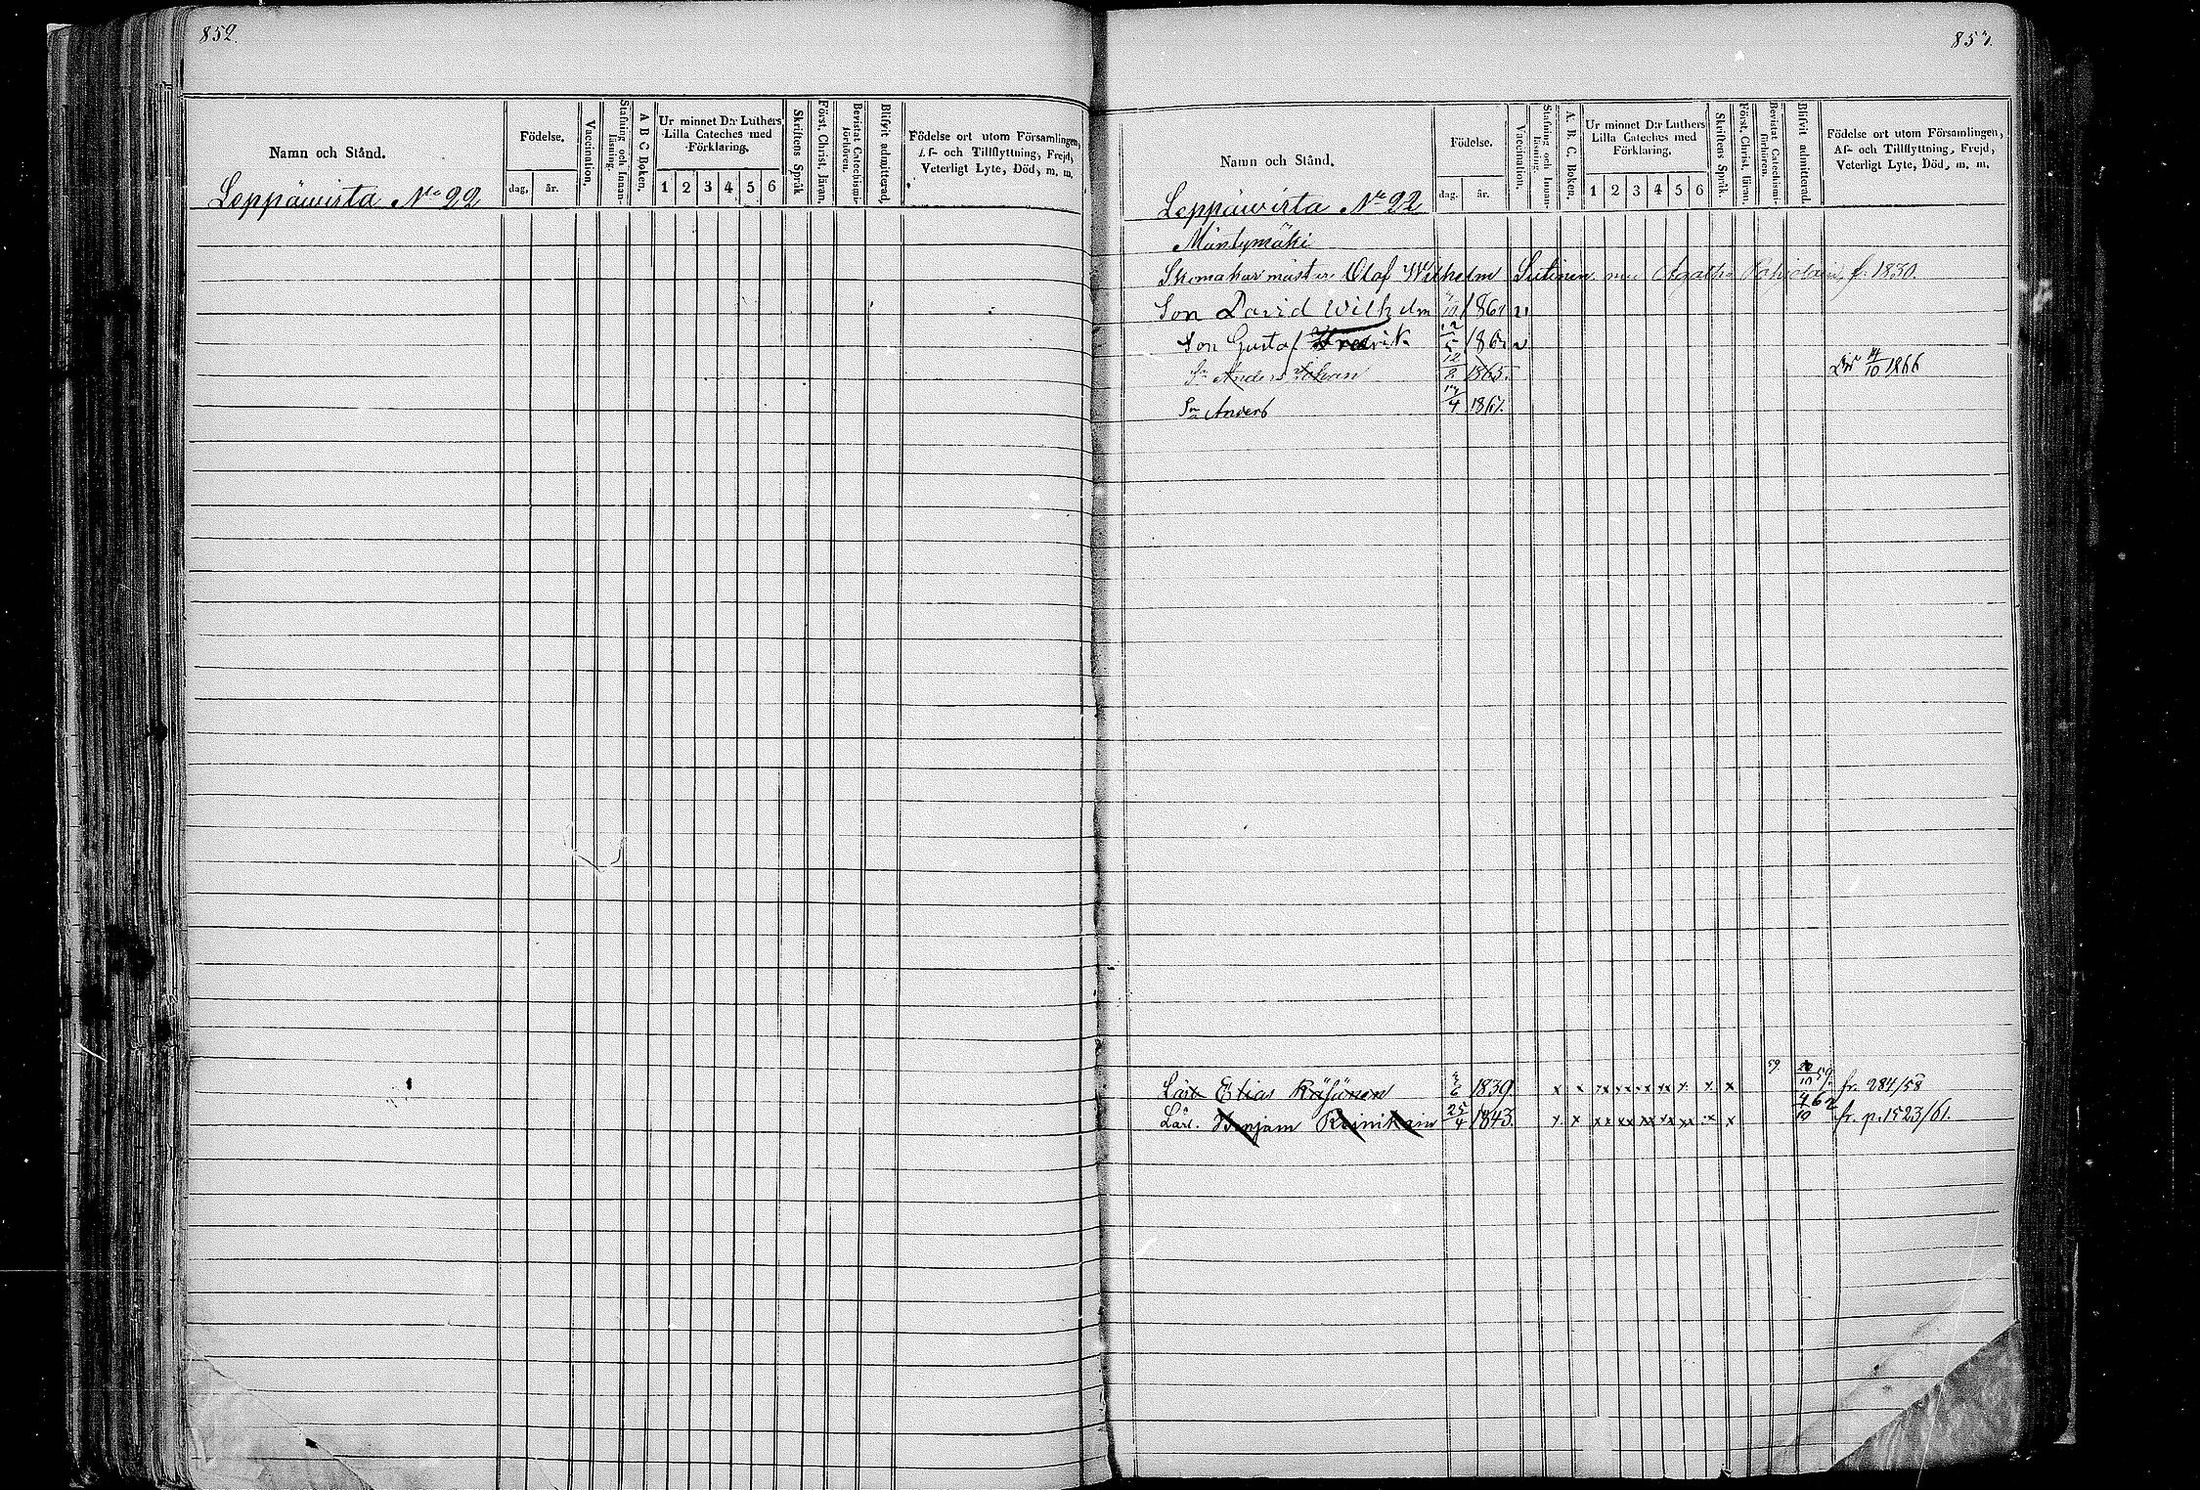 852.
Namn och Stånd.
Födelse.
dag, år.
Vaccination.
Stafning och Innanläsning.
A B C Boken.
Ur minnet D:r Luthers Lilla Cateches med Förklaring.
1 2 3 4 5 6
Skriftens Språk.
Först. Christ. läran.
Bevistat Catechismiförhören.
Blifvit admitterad.
Födelse ort utom Församlingen, Af- och Tillflyttning, Frejd, Veterligt Lyte, Död, m. m.
Leppäwirta No 22
853.
Namn och Stånd.
Födelse.
dag. år.
Vaccination.
Stafning och Innanläsning.
A. B. C. Boken.
Ur minnet D:r Luthers Lilla Cateches med Förklaring.
1 2 3 4 5 6
Skriftens Språk.
Först. Christ. läran.
Bevistat Catechismiförhören.
Blifvit admitterad.
Födelse ort utom Församlingen, Af- och Tillflyttning, Frejd, Veterligt Lyte, Död, m. m.
Leppäwirta No 22
Mäntymäki
Skomakar mästar Olof Wilhelm Sutinen Agatha f. 1830.
Son David Wilhelm
Son Gustaf Fredrik
Sn Anders Johan 12/2 1865. Död 14/10 1866
Sn Anders 17/4 1867.
Lärl Elias Räsänen 1839. x x x x x x x x x x 59 fr. 284/58
Lärl. Benjam Reinikain 25/4 1843. x x xx xx xx xx xx x x 62 fr. p. 1523/61.